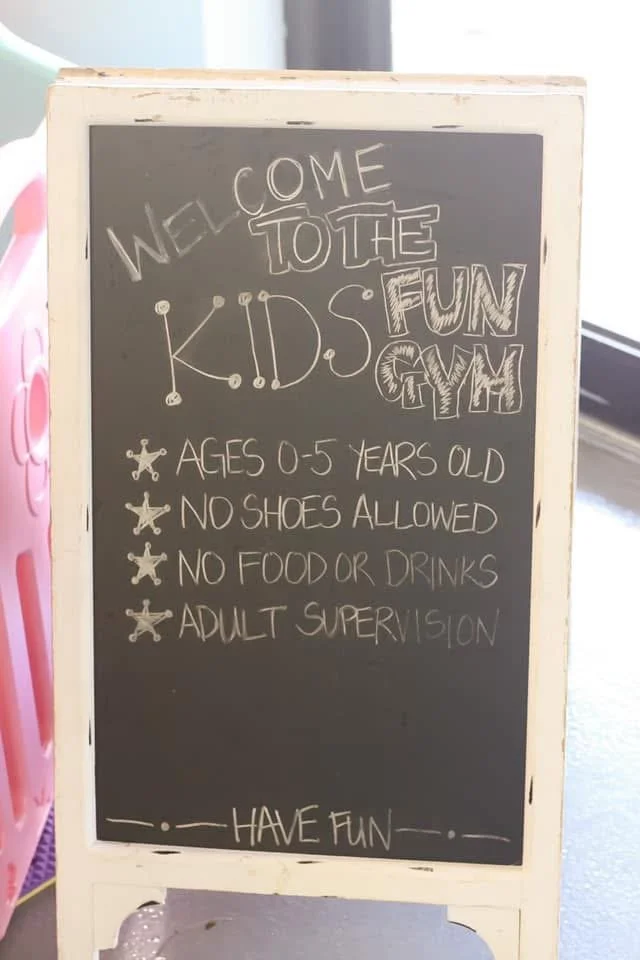 WELCOME
TO THE
KIDS FUN
GYM
AGES 0-5 YEARS OLD
NO SHOES ALLOWED
NO FOOD OR DRINKS
ADULT SUPERVISION
HAVE FUN